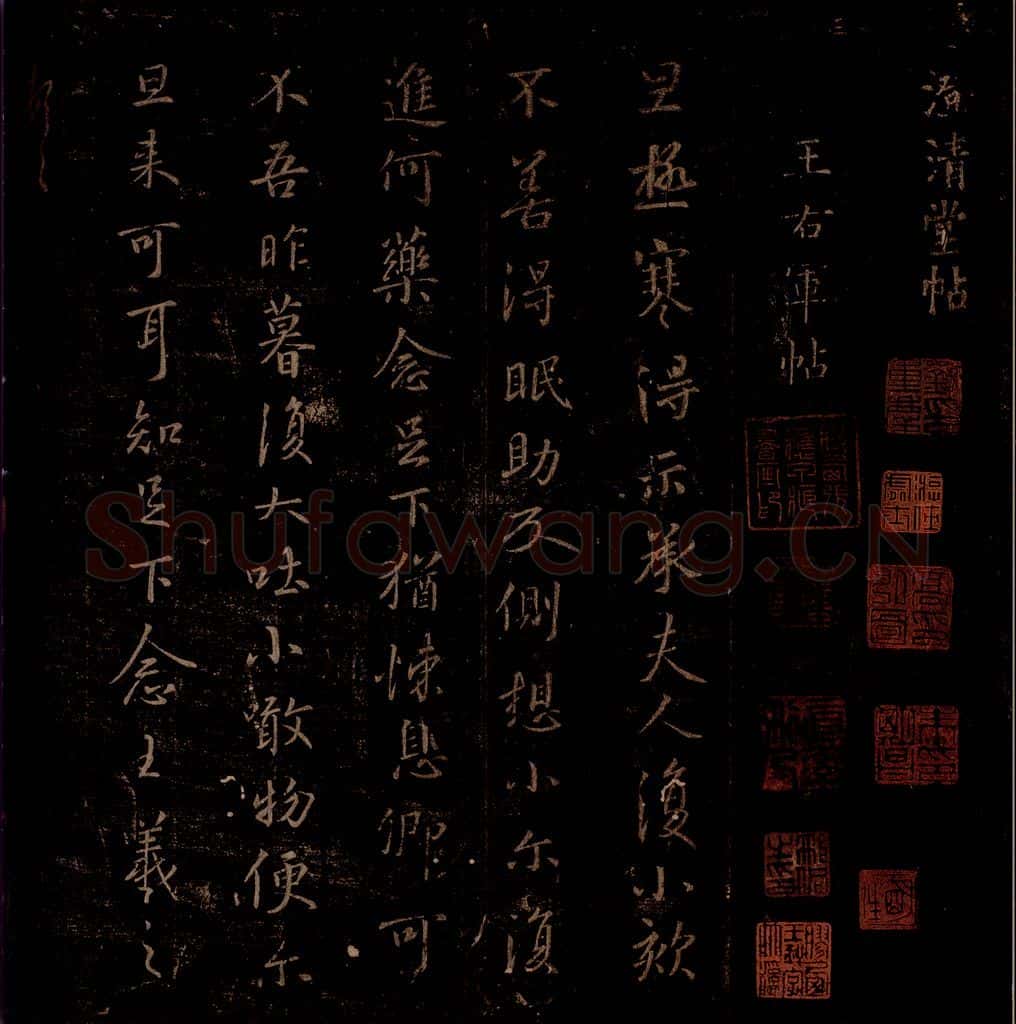 澄清堂帖
王右軍帖
旦極寒得示承夫人復小欬
不善得眠助反側想小尔復
進何藥念足下猶悚息卿可
不吾昨暮復大吐小噉物便尔
旦来可耳知足下念王羲之
Shufawang.CN